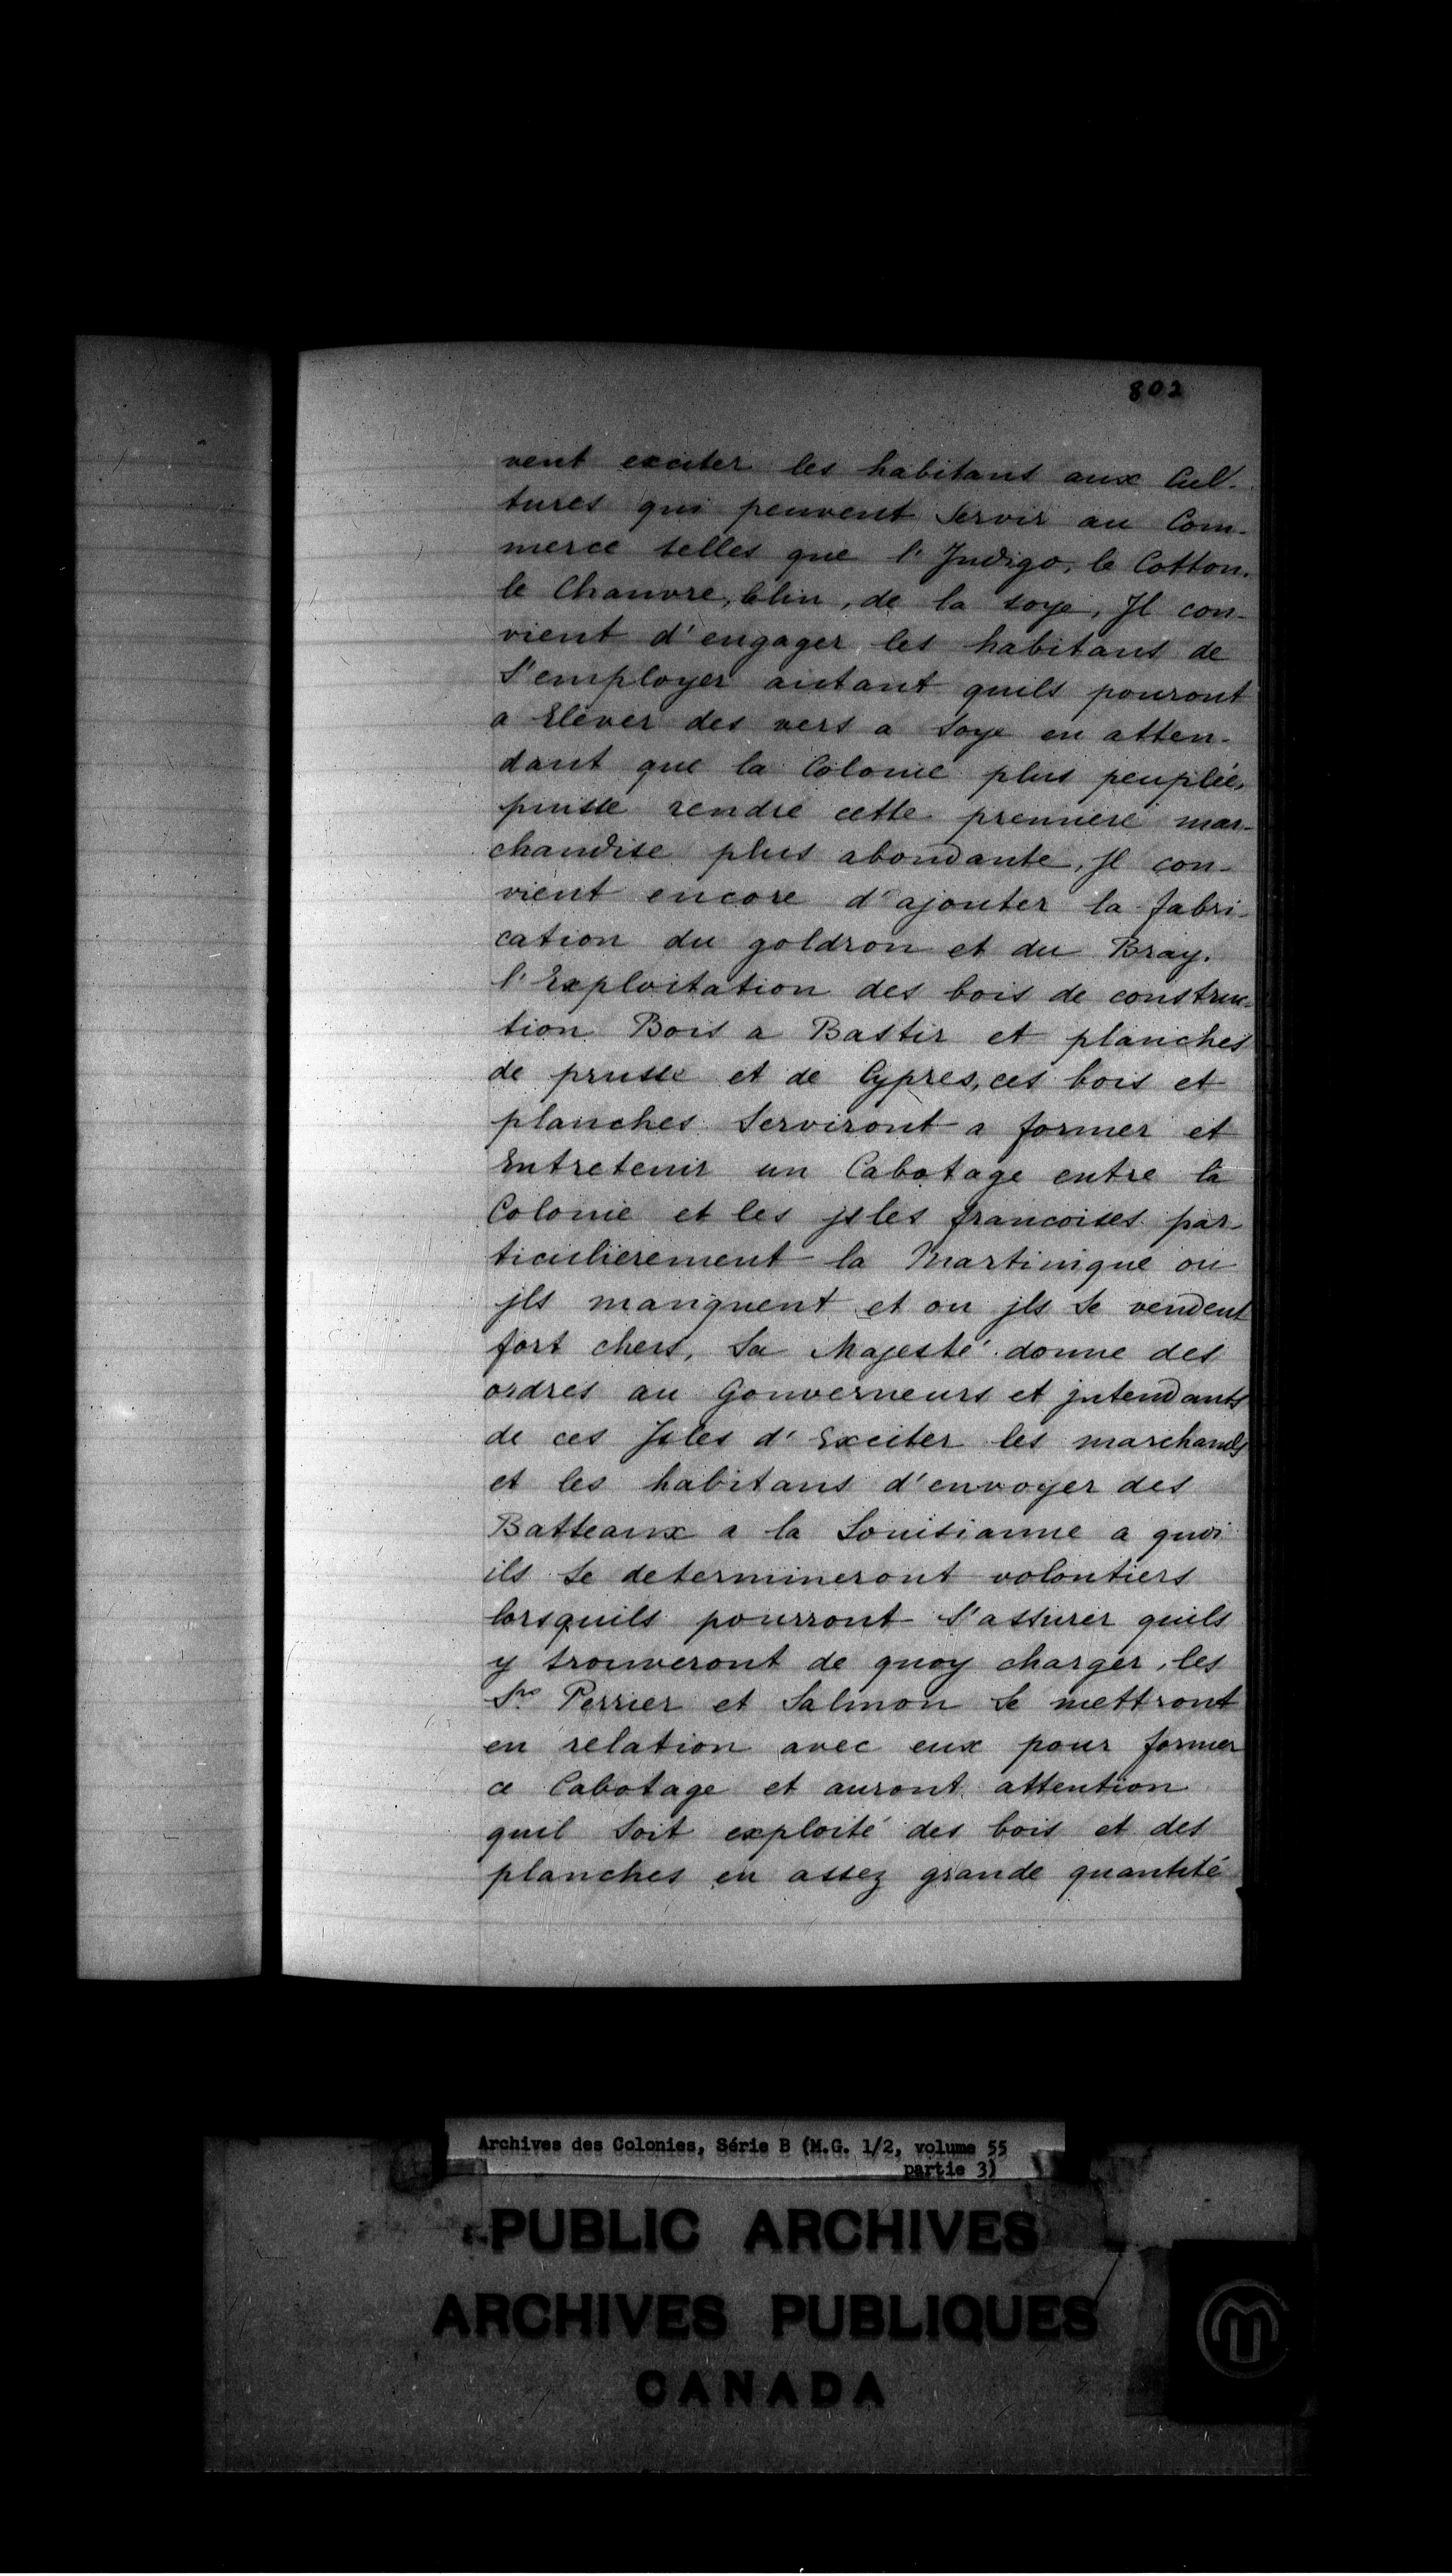 802
vent exciter les habitans aux Cul-
tures qui peuvent Servir au Com-
merce telles que l'Jndigo, le Cotton,
le Chanvre, lelin, de la soye, Jl con-
vient d'engager les habitans de
S'employer autant quils pouront
a Elever des vers a Soye en atten-
dant que la Colonie plus peuplée,
puisse rendre cette premiere mar-
chandise plus abondante, Jl con-
vient encore d'ajouter la fabri-
cation du goldron et du Bray,
l'Exploitation des bois de construc-
tion Bois a Bastir et planches
de prusse et de Cypres, ces bois et
planches Serviront a former et
Entretenir un Cabotage entre la
Colonie et les jsles francoises par-
ticulierement la Martinique ou
jls manquent et ou jls Se vendent
fort chers, Sa Majesté donne des
ordres au Gouverneurs et jntendants
de ces Jsles d'Exciter les marchands
et les habitans d'envoyer des
Batteaux a la Louisianne a quoi
ils Se determineront volontiers
lorsquils pourront S'assurer quils
y trouveront de quoy charger, les
Srs Perrier et Salmon Se mettront
en relation avec eux pour former
ce Cabotage et auront attention
quil Soit exploité des bois et des
planches en assez grande quantité
Archives des Colonies, Série B (M.G. 1/2, volume 55
partie 3)
PUBLIC ARCHIVES
ARCHIVES PUBLIQUES
CANADA